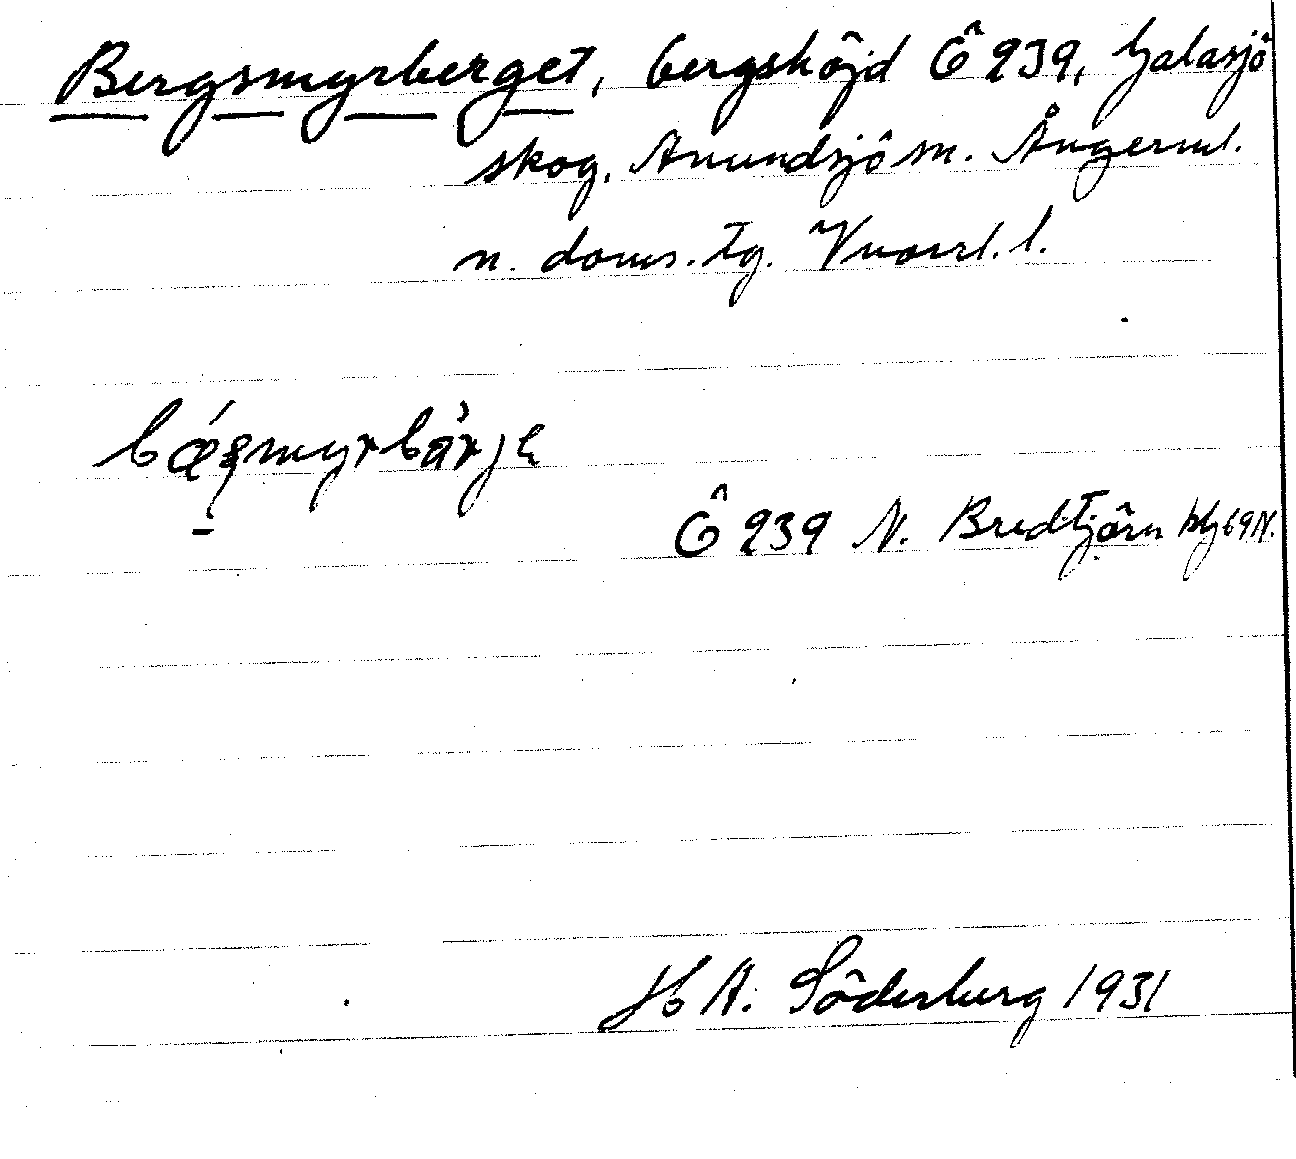 Bergsmyrberget, bergshöjd Ö 939, Galasjö
skog, Anundsjö sn. Ångerml.
n. doms. tg. Vnorrl. l.
Ö 939 N. Bredtjärn blj 69 N.
H A. Söderberg 1931